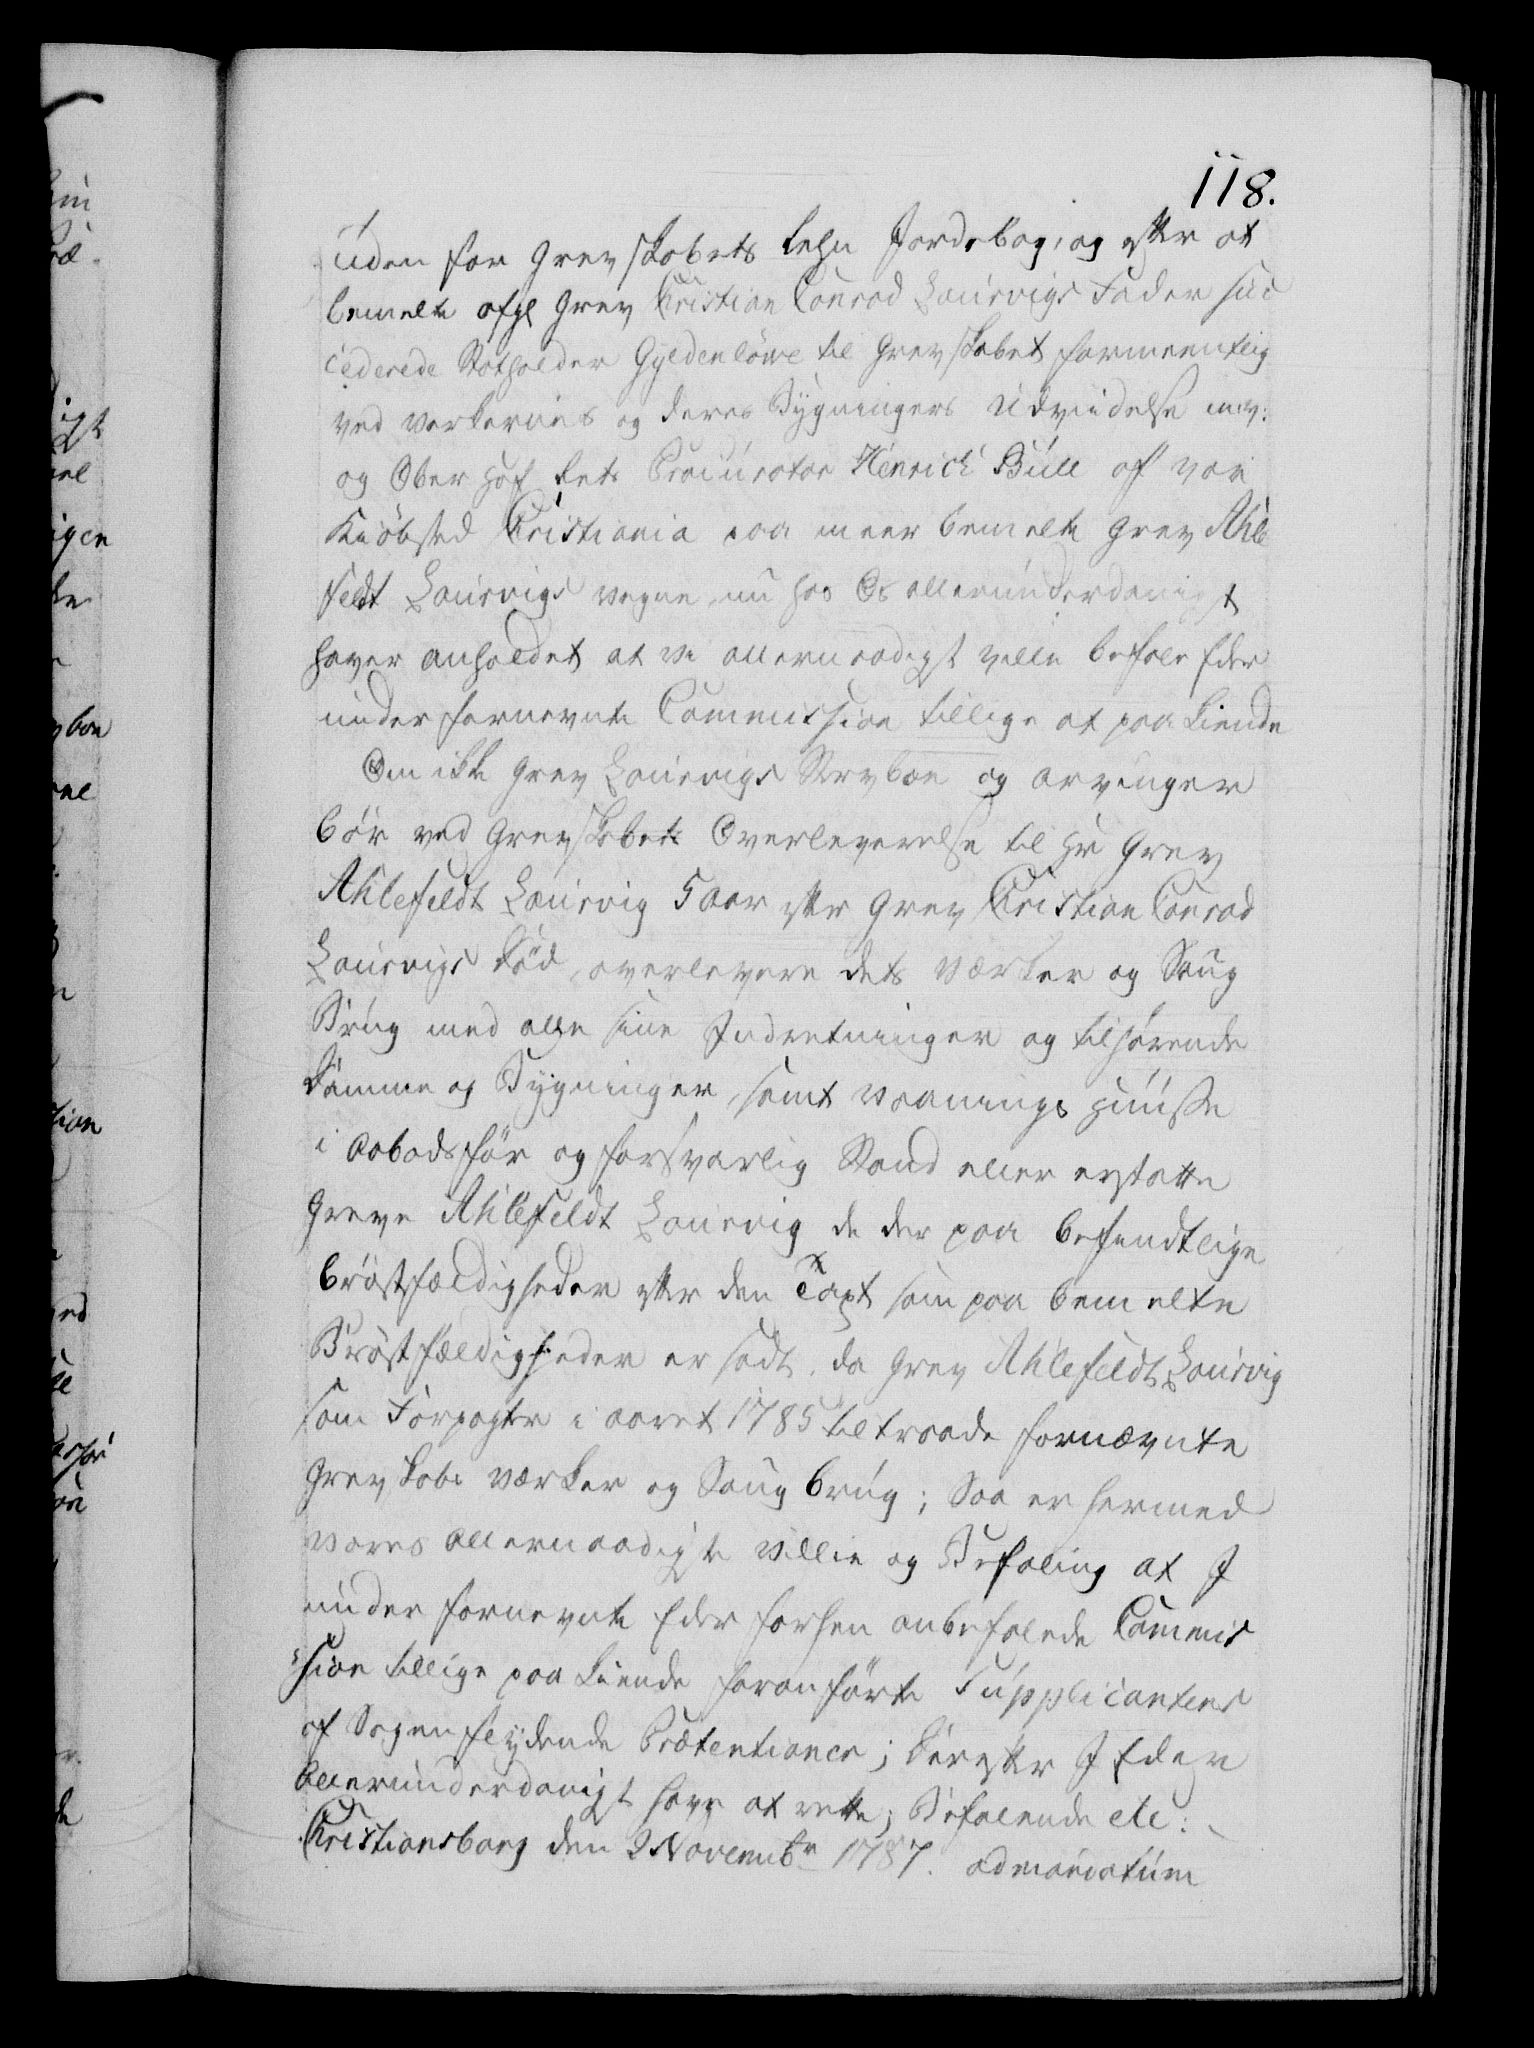 118.
uden for Grevskobets Lehn Jordebog, og efter at
bemelte afg. Grev Christian Conrad Laurvigs Fader suc
cederede Statholder Gyldenlöwe til Grevskabet formeentlig
ved Verkernes og deres Bygningers Udvidelse m. v:
og Ober Hof Rets Procurator Henrich Bull af vor
Kiöbsted Christiania paa meer bemelte Grev Ahle
feldt Laurvigs vegne nu hos Os allerunderdanigst
haver anholdet at vi allernaadigst ville befale Eder
under fornevnte Commission tillige at paa Kiende
Om ikke Grev Laurvigs Stervboe og arvinger
bör ved Grevskabets Overleverelse til Hr Grev
Ahlefeldt Laurvig 5 aar efter Grev Christian Conrad
Laurvigs Död, overlevere dets Værker og Saug
Brug med alle sine Indretninger og tilhörende
Damme og Bygninger, samt Vaanings Huuse
i Aabodsför og forsvarlig Stand eller erstatte
Greve Ahlefeldt Laurvig de der paa befindtlige
Bröstfældigheder efter den Taxt som paa bemelte
Bröstfældigheder er sadt, da Grev Ahlefeldt Laurvig
som Forpagter i aaret 1785 tiltraade fornævnte
Grevskabs Værker og Saug brug; Saa er hermed
Vores Allernaadigste Villie og Befaling at I
under fornevnte Eder forhen anbefalede Commis
sion tillige paa Kiende foranförte Supplicantens
af Sagen flydende Prætentioner; Derefter I Eder
Allerunderdanigst have at rette; Befalende etc:
Christiansborg den 9 Novembr 1787. ad mandatum